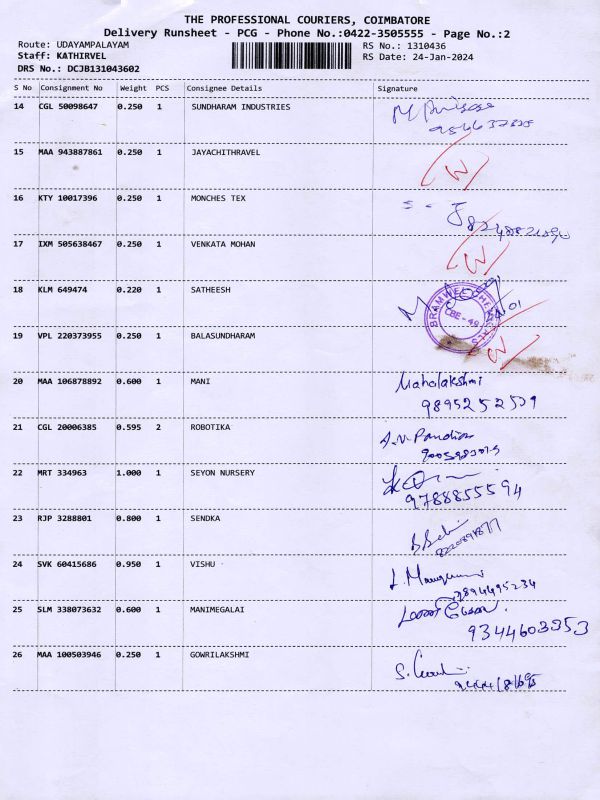 THE PROFESSIONAL COURIERS, COIMBATORE
Delivery Runsheet - PCG - Phone No.:0422-3505555 - Page No.:2
Route: UDAYAMPALAYAM
RS No.: 1310436
Staff: KATHIRVEL
RS Date: 24-Jan-2024
DRS No.: DCJB131043602
S No Consignment No Weight PCS Consignee Details Signature
14 CGL 50098647 0.250 1 SUNDHARAM INDUSTRIES
15 MAA 943887861 0.250 1 JAYACHITHRAVEL
16 KTY 10017396 0.250 1 MONCHES TEX
17 IXM 505638467 0.250 1 VENKATA MOHAN
18 KLM 649474 0.220 1 SATHEESH
CBE-49
19 VPL 220373955 0.250 1 BALASUNDHARAM
20 MAA 106878892 0.600 1 MANI Maholakshmi
21 CGL 20006385 0.595 2 ROBOTIKA
22 MRT 334963 1.000 1 SEYON NURSERY
9788855594
23 RJP 3288801 0.800 1 SENDKA
24 SVK 60415686 0.950 1 VISHU
7894495234
25 SLM 338073632 0.600 1 MANIMEGALAI
9344603353
26 MAA 100503946 0.250 1 GOWRILAKSHMI